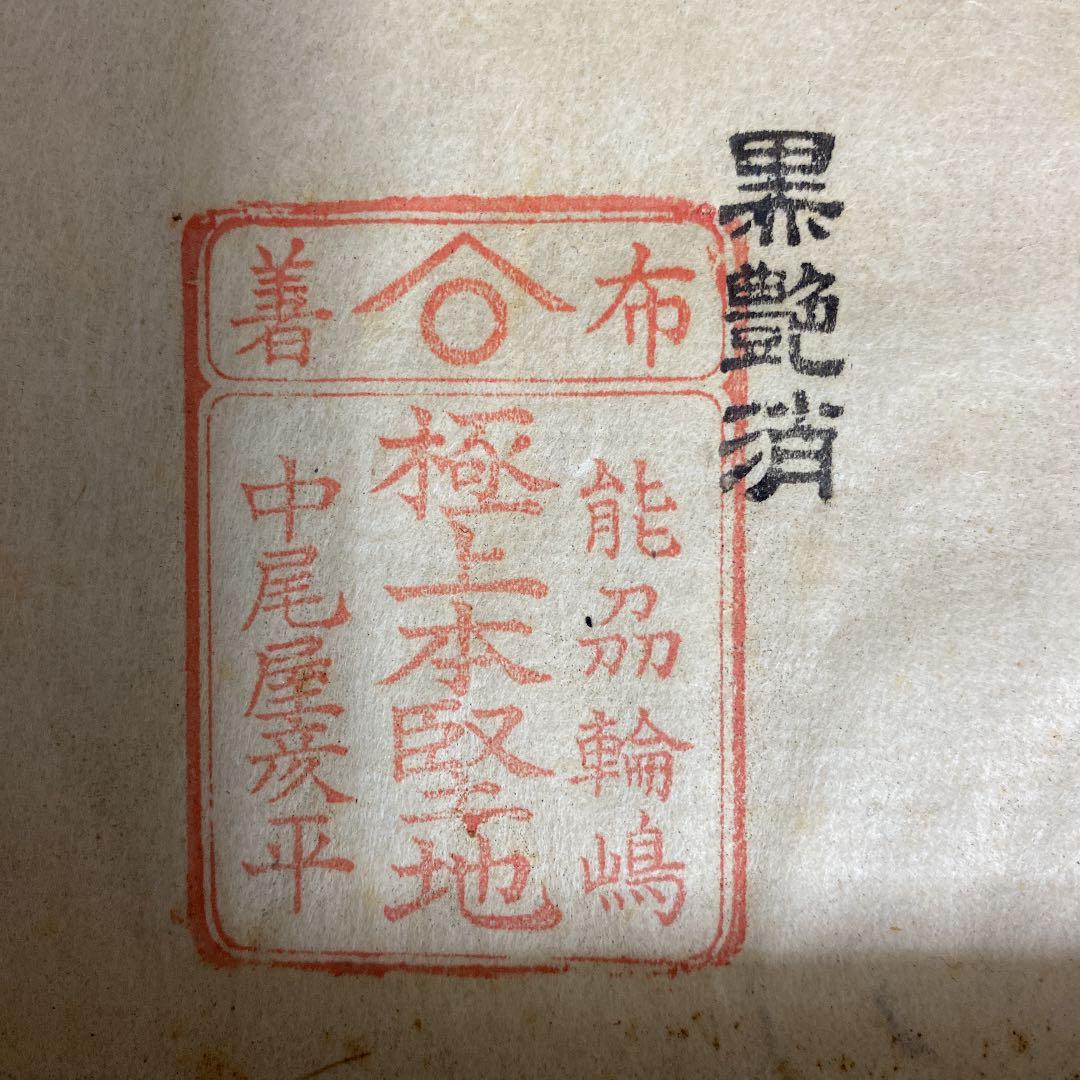 黒艶消
布善
能刕輪嶋
極上本堅地
中尾屋彦平